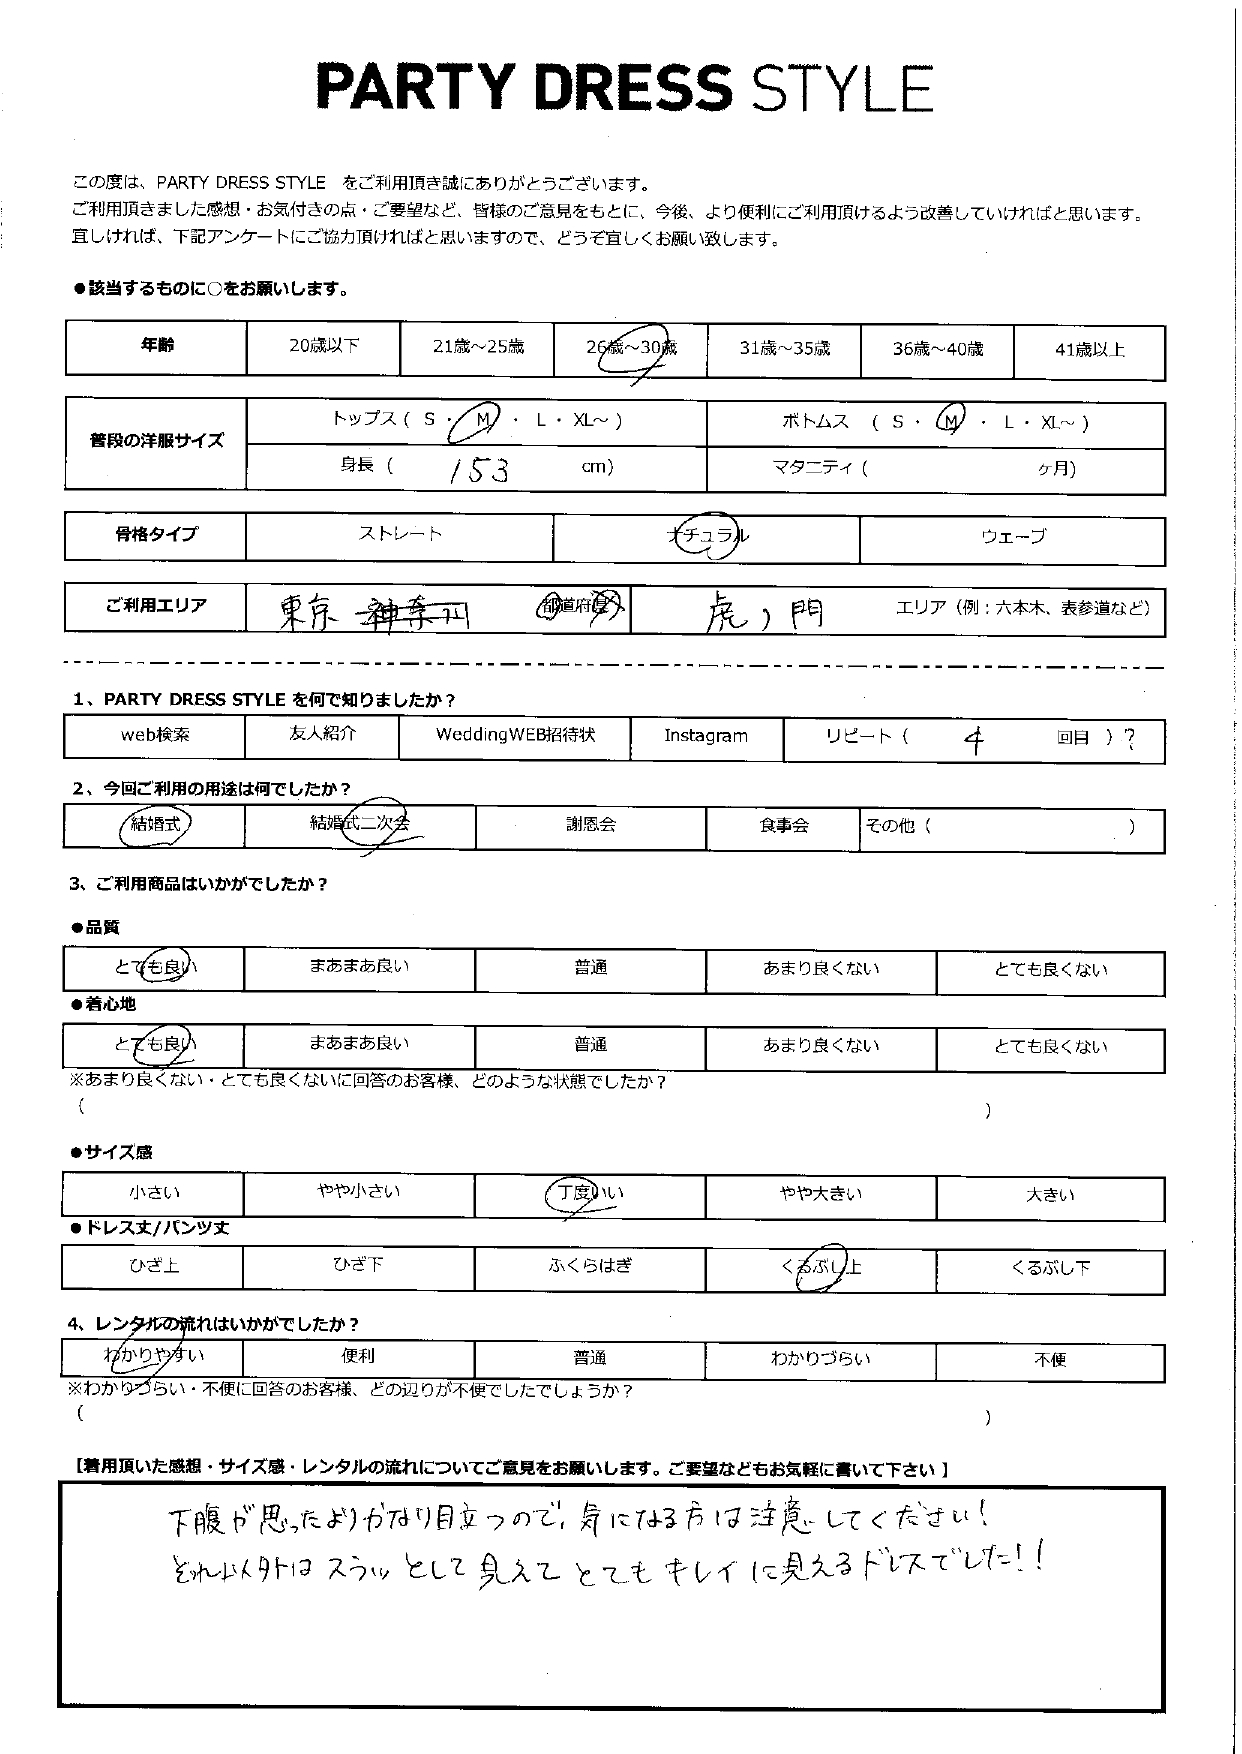 PARTY DRESS STYLE
この度は、PARTY DRESS STYLE をご利用頂き誠にありがとうございます。
ご利用頂きました感想・お気付きの点・ご要望など、皆様のご意見をもとに、今後、より便利にご利用頂けるよう改善していければと思います。
宜しければ、下記アンケートにご協力頂ければと思いますので、どうぞ宜しくお願い致します。
●該当するものに○をお願いします。
年齢 20歳以下 21歳～25歳 26歳～30歳 31歳～35歳 36歳～40歳 41歳以上
普段の洋服サイズ
トップス ( S ・ M ・ L ・ XL～ ) ボトムス ( S ・ M ・ L ・ XL～ )
身長 ( 153 cm) マタニティ ( ヶ月)
骨格タイプ ストレート ナチュラル ウェーブ
ご利用エリア 東京 神奈川 都道府県 虎ノ門 エリア（例：六本木、表参道など）
1、PARTY DRESS STYLE を何で知りましたか？
web検索 友人紹介 WeddingWEB招待状 Instagram リピート ( 4 回目 ) ?
2、今回ご利用の用途は何でしたか？
結婚式 結婚式二次会 謝恩会 食事会 その他 ( )
3、ご利用商品はいかがでしたか？
●品質
とても良い まあまあ良い 普通 あまり良くない とても良くない
●着心地
とても良い まあまあ良い 普通 あまり良くない とても良くない
※あまり良くない・とても良くないに回答のお客様、どのような状態でしたか？
( )
●サイズ感
小さい やや小さい 丁度いい やや大きい 大きい
●ドレス丈/パンツ丈
ひざ上 ひざ下 ふくらはぎ くるぶし上 くるぶし下
4、レンタルの流れはいかがでしたか？
わかりやすい 便利 普通 わかりづらい 不便
※わかりづらい・不便に回答のお客様、どの辺りが不便でしたでしょうか？
( )
【着用頂いた感想・サイズ感・レンタルの流れについてご意見をお願いします。ご要望などもお気軽に書いて下さい 】
下腹が思ったよりかなり目立つので、気になる方は注意してください！
それ以外はスラッとして見えてとてもキレイに見えるドレスでした！！